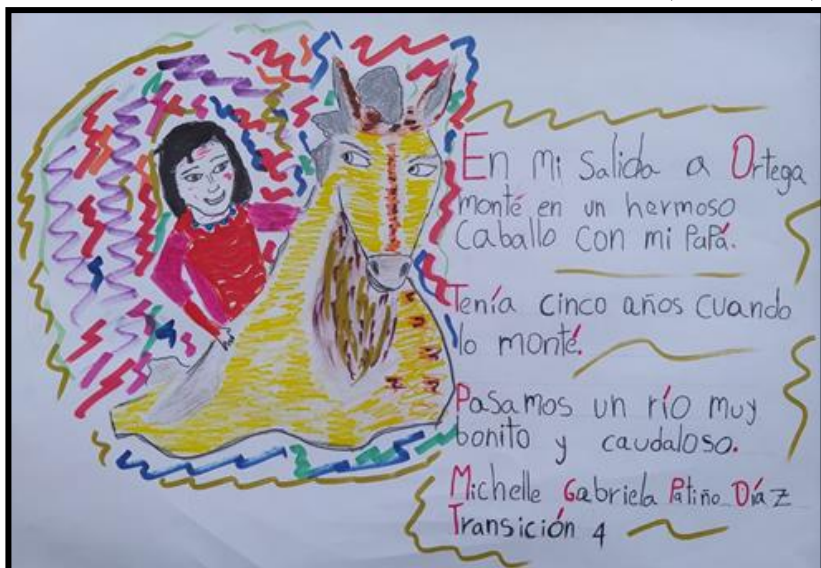 En mi salida a Ortega
monté en un hermoso
caballo con mi papá.
Tenía cinco años cuando
lo monté.
Pasamos un río muy
bonito y caudaloso.
Michelle Gabriela Patiño Díaz
Transición 4